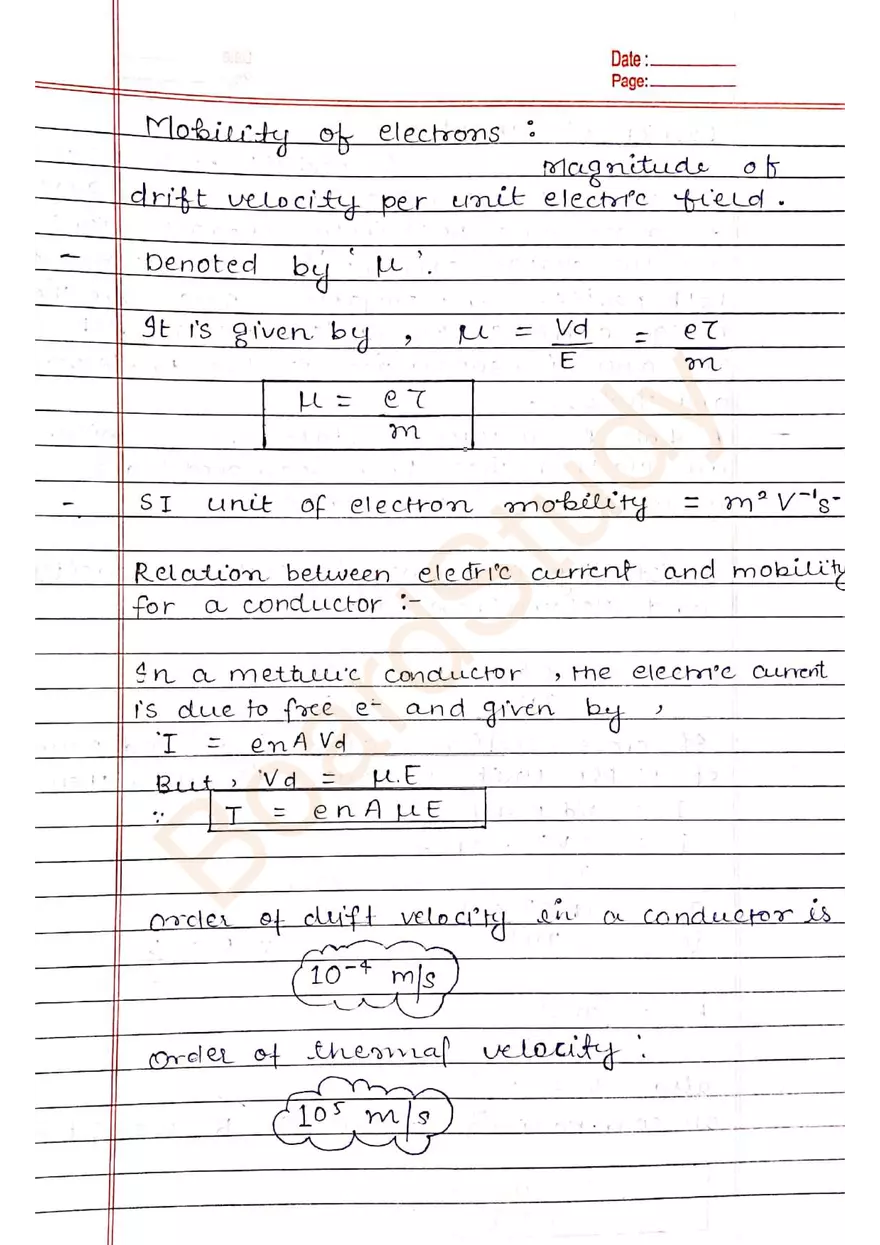 Date :
Page:
Mobility of electrons :
Magnitude of
drift velocity per unit electric field.
- Denoted by 'μ'.
It is given by , μ = Vd/E = eτ/m
μ = eτ/m
- SI unit of electron mobility = m² V⁻¹s⁻
Relation between electric current and mobility
for a conductor :-
In a mettalic conductor , the electric current
is due to free e⁻ and given by ,
I = enAVd
But , Vd = μ.E
∵ I = enAμE
order of drift velocity in a conductor is
10⁻⁴ m/s
order of thermal velocity :
10⁵ m/s
BoardStudy